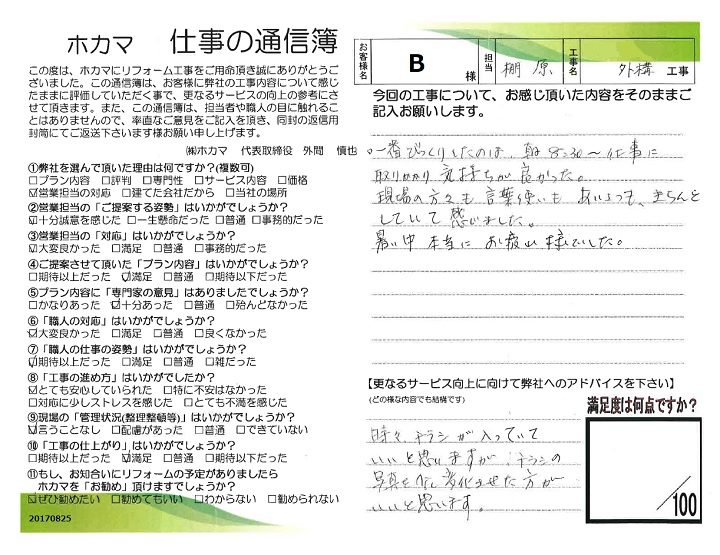 ホカマ 仕事の通信簿
この度は、ホカマにリフォーム工事をご用命頂き誠にありがとうご
ざいました。この通信簿は、お客様に弊社の工事内容について感じ
たままに評価していただく事で、更なるサービスの向上の参考にさ
せて頂きます。また、この通信簿は、担当者や職人の目に触れるこ
とはありませんので、率直なご意見をご記入を頂き、同封の返信用
封筒にてご返送下さいます様お願い申し上げます。
㈱ホカマ 代表取締役 外間 慎也
①弊社を選んで頂いた理由は何ですか?(複数可)
□プラン内容 □評判 □専門性 □サービス内容 □価格
☑営業担当の対応 □建てた会社だから □当社の場所
②営業担当の「ご提案する姿勢」はいかがでしょうか?
☑十分誠意を感じた □一生懸命だった □普通 □事務的だった
③営業担当の「対応」はいかがでしょうか?
☑大変良かった □満足 □普通 □事務的だった
④ご提案させて頂いた「プラン内容」はいかがでしょうか?
□期待以上だった ☑満足 □普通 □期待以下だった
⑤プラン内容に「専門家の意見」はありましたでしょうか?
□かなりあった ☑十分あった □普通 □殆んどなかった
⑥「職人の対応」はいかがでしょうか?
☑大変良かった □満足 □普通 □良くなかった
⑦「職人の仕事の姿勢」はいかがでしょうか?
☑期待以上だった □満足 □普通 □雑だった
⑧「工事の進め方」はいかがでしたか?
☑とても安心していられた □特に不安はなかった
□対応に少しストレスを感じた □とても不満を感じた
⑨現場の「管理状況(整理整頓等)」はいかがでしょうか?
☑言うことなし □配慮があった □普通 □できていない
⑩「工事の仕上がり」はいかがでしょうか?
□期待以上だった ☑満足 □普通 □期待以下だった
⑪もし、お知合いにリフォームの予定がありましたら
ホカマを「お勧め」頂けますでしょうか?
☑ぜひ勧めたい □勧めてもいい □わからない □勧められない
20170825
お客様名 B 様 担当 棚原 工事名 外構 工事
今回の工事について、お感じ頂いた内容をそのままご
記入お願いします。
一番びっくりしたのは、朝8:30〜仕事に
取りかかり気持ちが良かった。
現場の方々も言葉使いもあいさつも、きちんと
していて感じました。
暑い中本当にお疲れ様でした。
【更なるサービス向上に向けて弊社へのアドバイスを下さい】
(どの様な内容でも結構です)
時々、チラシが入っていて
いいと思いますが、チラシの
写真を変化させた方が
いいと思います。
満足度は何点ですか?
/100